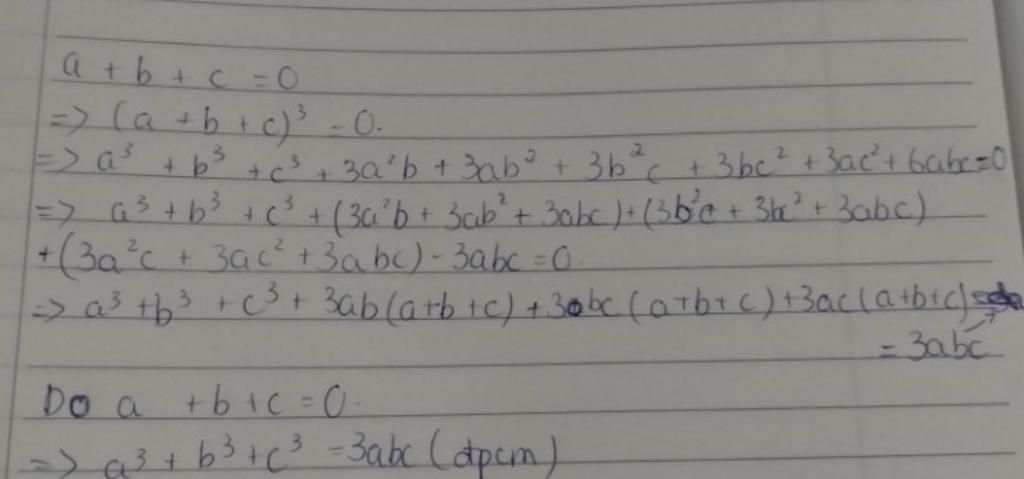 a + b + c = 0
=> (a + b + c)³ = 0.
=> a³ + b³ + c³ + 3a²b + 3ab² + 3b²c + 3bc² + 3ac² + 6abc = 0
=> a³ + b³ + c³ + (3a²b + 3ab² + 3abc) + (3b²c + 3bc² + 3abc)
+ (3a²c + 3ac² + 3abc) - 3abc = 0
=> a³ + b³ + c³ + 3ab(a+b+c) + 3bc(a+b+c) + 3ac(a+b+c)
= 3abc
Do a + b + c = 0.
=> a³ + b³ + c³ = 3abc (đpcm)